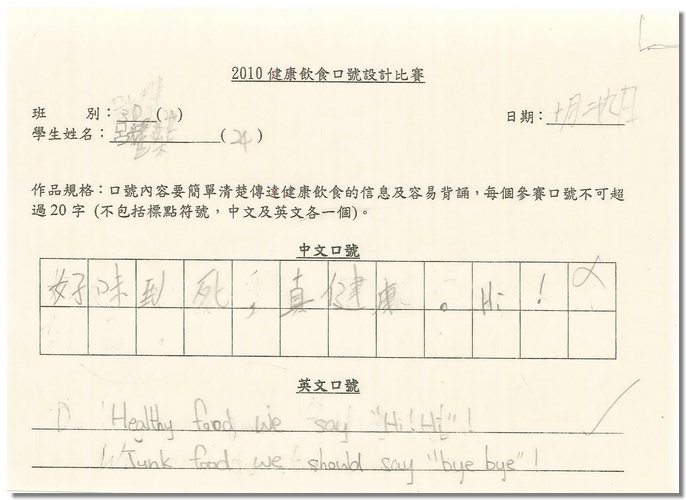 2010 健康飲食口號設計比賽
班 別：3D (24)
日期：十月二九日
學生姓名： (24)
作品規格：口號內容要簡單清楚傳達健康飲食的信息及容易背誦，每個參賽口號不可超
過20字 (不包括標點符號，中文及英文各一個)。
中文口號
好味到死，真健康。Hi！
英文口號
Healthy food we say "Hi! Hi"!
Junk food we should say "bye bye"!